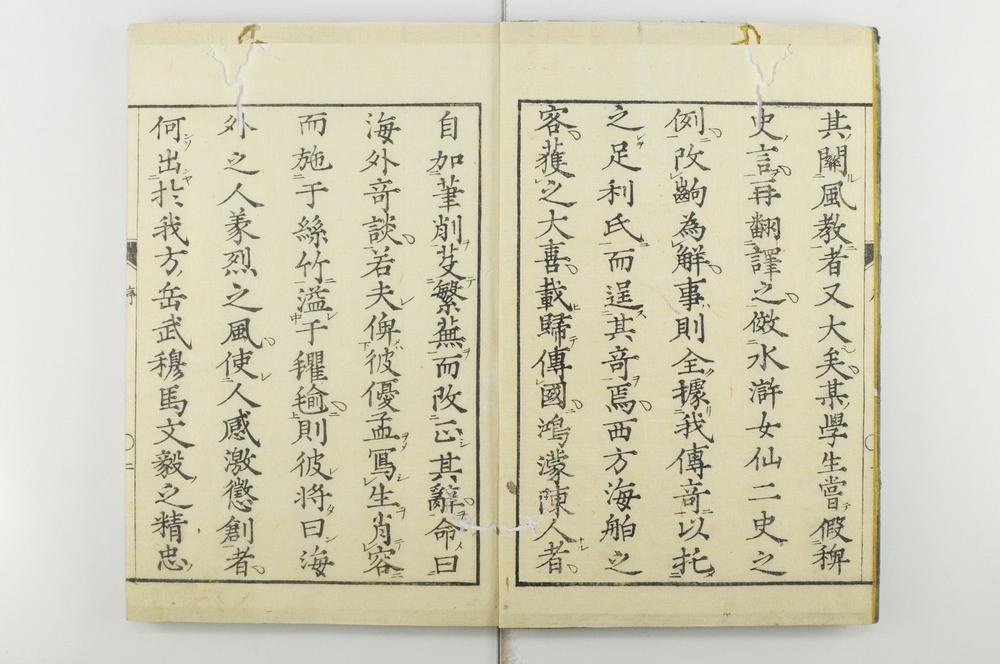 其關風教者又大矣某學生嘗假稗
史言再翻譯之倣水滸女仙二史之
例改齣為解事則全據我傳奇以托
之足利氏而逞其奇焉西方海舶之
客獲之大喜載歸傳國鴻濛陳人者
自加筆削芟繁蕪而改正其辭命曰
海外奇談若夫俾彼優孟寫生肖容
而施于絲竹溢于氍毹則彼将曰海
外之人義烈之風使人感激懲創者
何出於我方岳武穆馬文毅之精忠
序
二